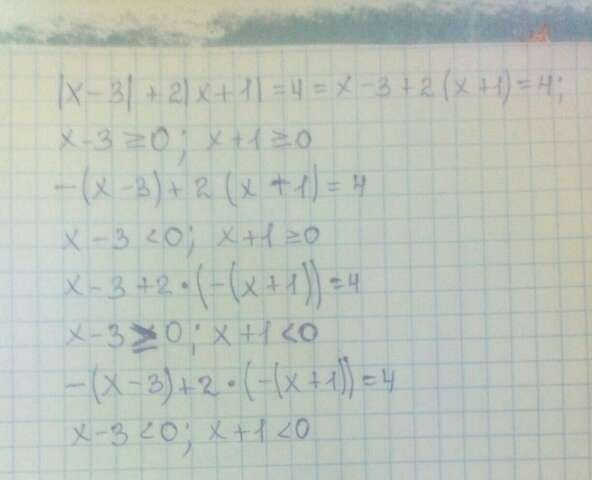 |x-3|+2|x+1|=4=x-3+2(x+1)=4;
x-3≥0; x+1≥0
-(x-3)+2(x+1)=4
x-3<0; x+1≥0
x-3+2·(-(x+1))=4
x-3≥0; x+1<0
-(x-3)+2·(-(x+1))=4
x-3<0; x+1<0